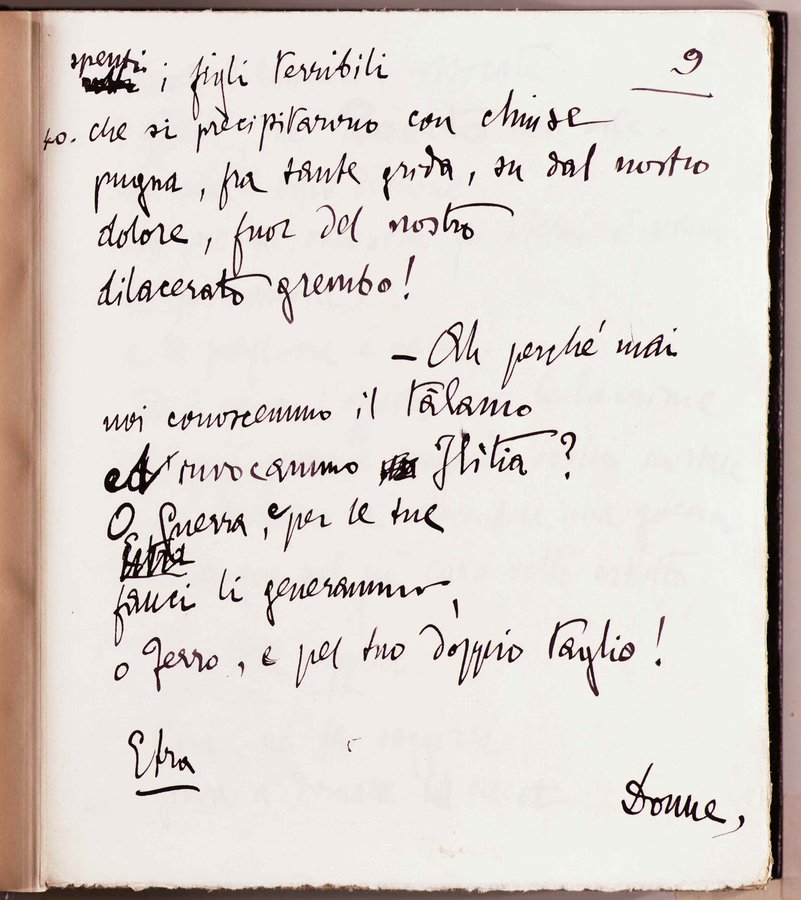 9
spenti i figli terribili
40. che si precipitarono con chiuse
pugna, fra tante grida, su dal nostro
dolore, fuor del nostro
dilacerato grembo!
— Ah perché mai
noi conoscemmo il tàlamo
ed invocammo Ilitia?
O Guerra, e per le tue
Etra
fauci li generammo,
o Ferro, e pel tuo dòppio taglio!
Etra
Donne,